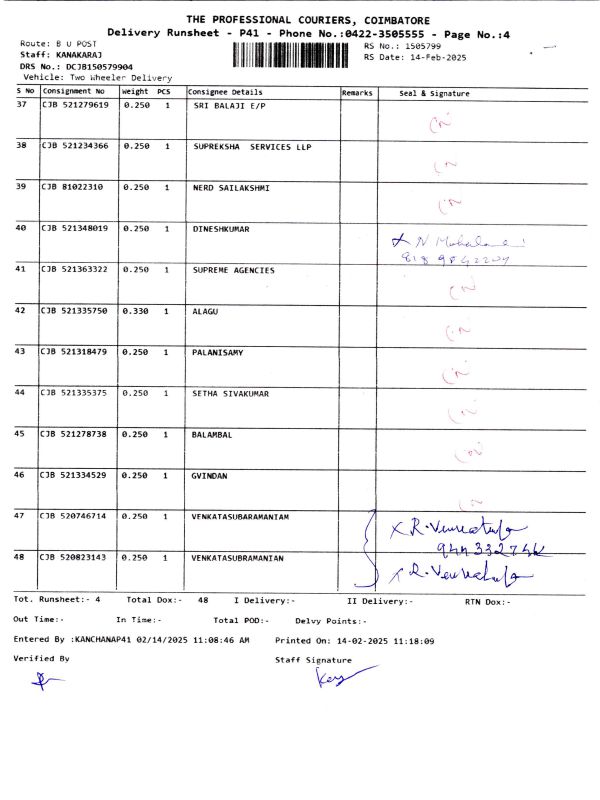 THE PROFESSIONAL COURIERS, COIMBATORE
Delivery Runsheet - P41 - Phone No.:0422-3505555 - Page No.:4
Route: B U POST RS No.: 1505799
Staff: KANAKARAJ RS Date: 14-Feb-2025
DRS No.: DCJB150579904
Vehicle: Two Wheeler Delivery
S No Consignment No Weight PCS Consignee Details Remarks Seal & Signature
37 CJB 521279619 0.250 1 SRI BALAJI E/P
38 CJB 521234366 0.250 1 SUPREKSHA SERVICES LLP
39 CJB 81022310 0.250 1 NERD SAILAKSHMI
40 CJB 521348019 0.250 1 DINESHKUMAR
41 CJB 521363322 0.250 1 SUPREME AGENCIES
42 CJB 521335750 0.330 1 ALAGU
43 CJB 521318479 0.250 1 PALANISAMY
44 CJB 521335375 0.250 1 SETHA SIVAKUMAR
45 CJB 521278738 0.250 1 BALAMBAL
46 CJB 521334529 0.250 1 GVINDAN
47 CJB 520746714 0.250 1 VENKATASUBARAMANIAM
48 CJB 520823143 0.250 1 VENKATASUBRAMANIAN
Tot. Runsheet:- 4 Total Dox:- 48 I Delivery:- II Delivery:- RTN Dox:-
Out Time:- In Time:- Total POD:- Delvy Points:-
Entered By :KANCHANAP41 02/14/2025 11:08:46 AM Printed On: 14-02-2025 11:18:09
Verified By Staff Signature